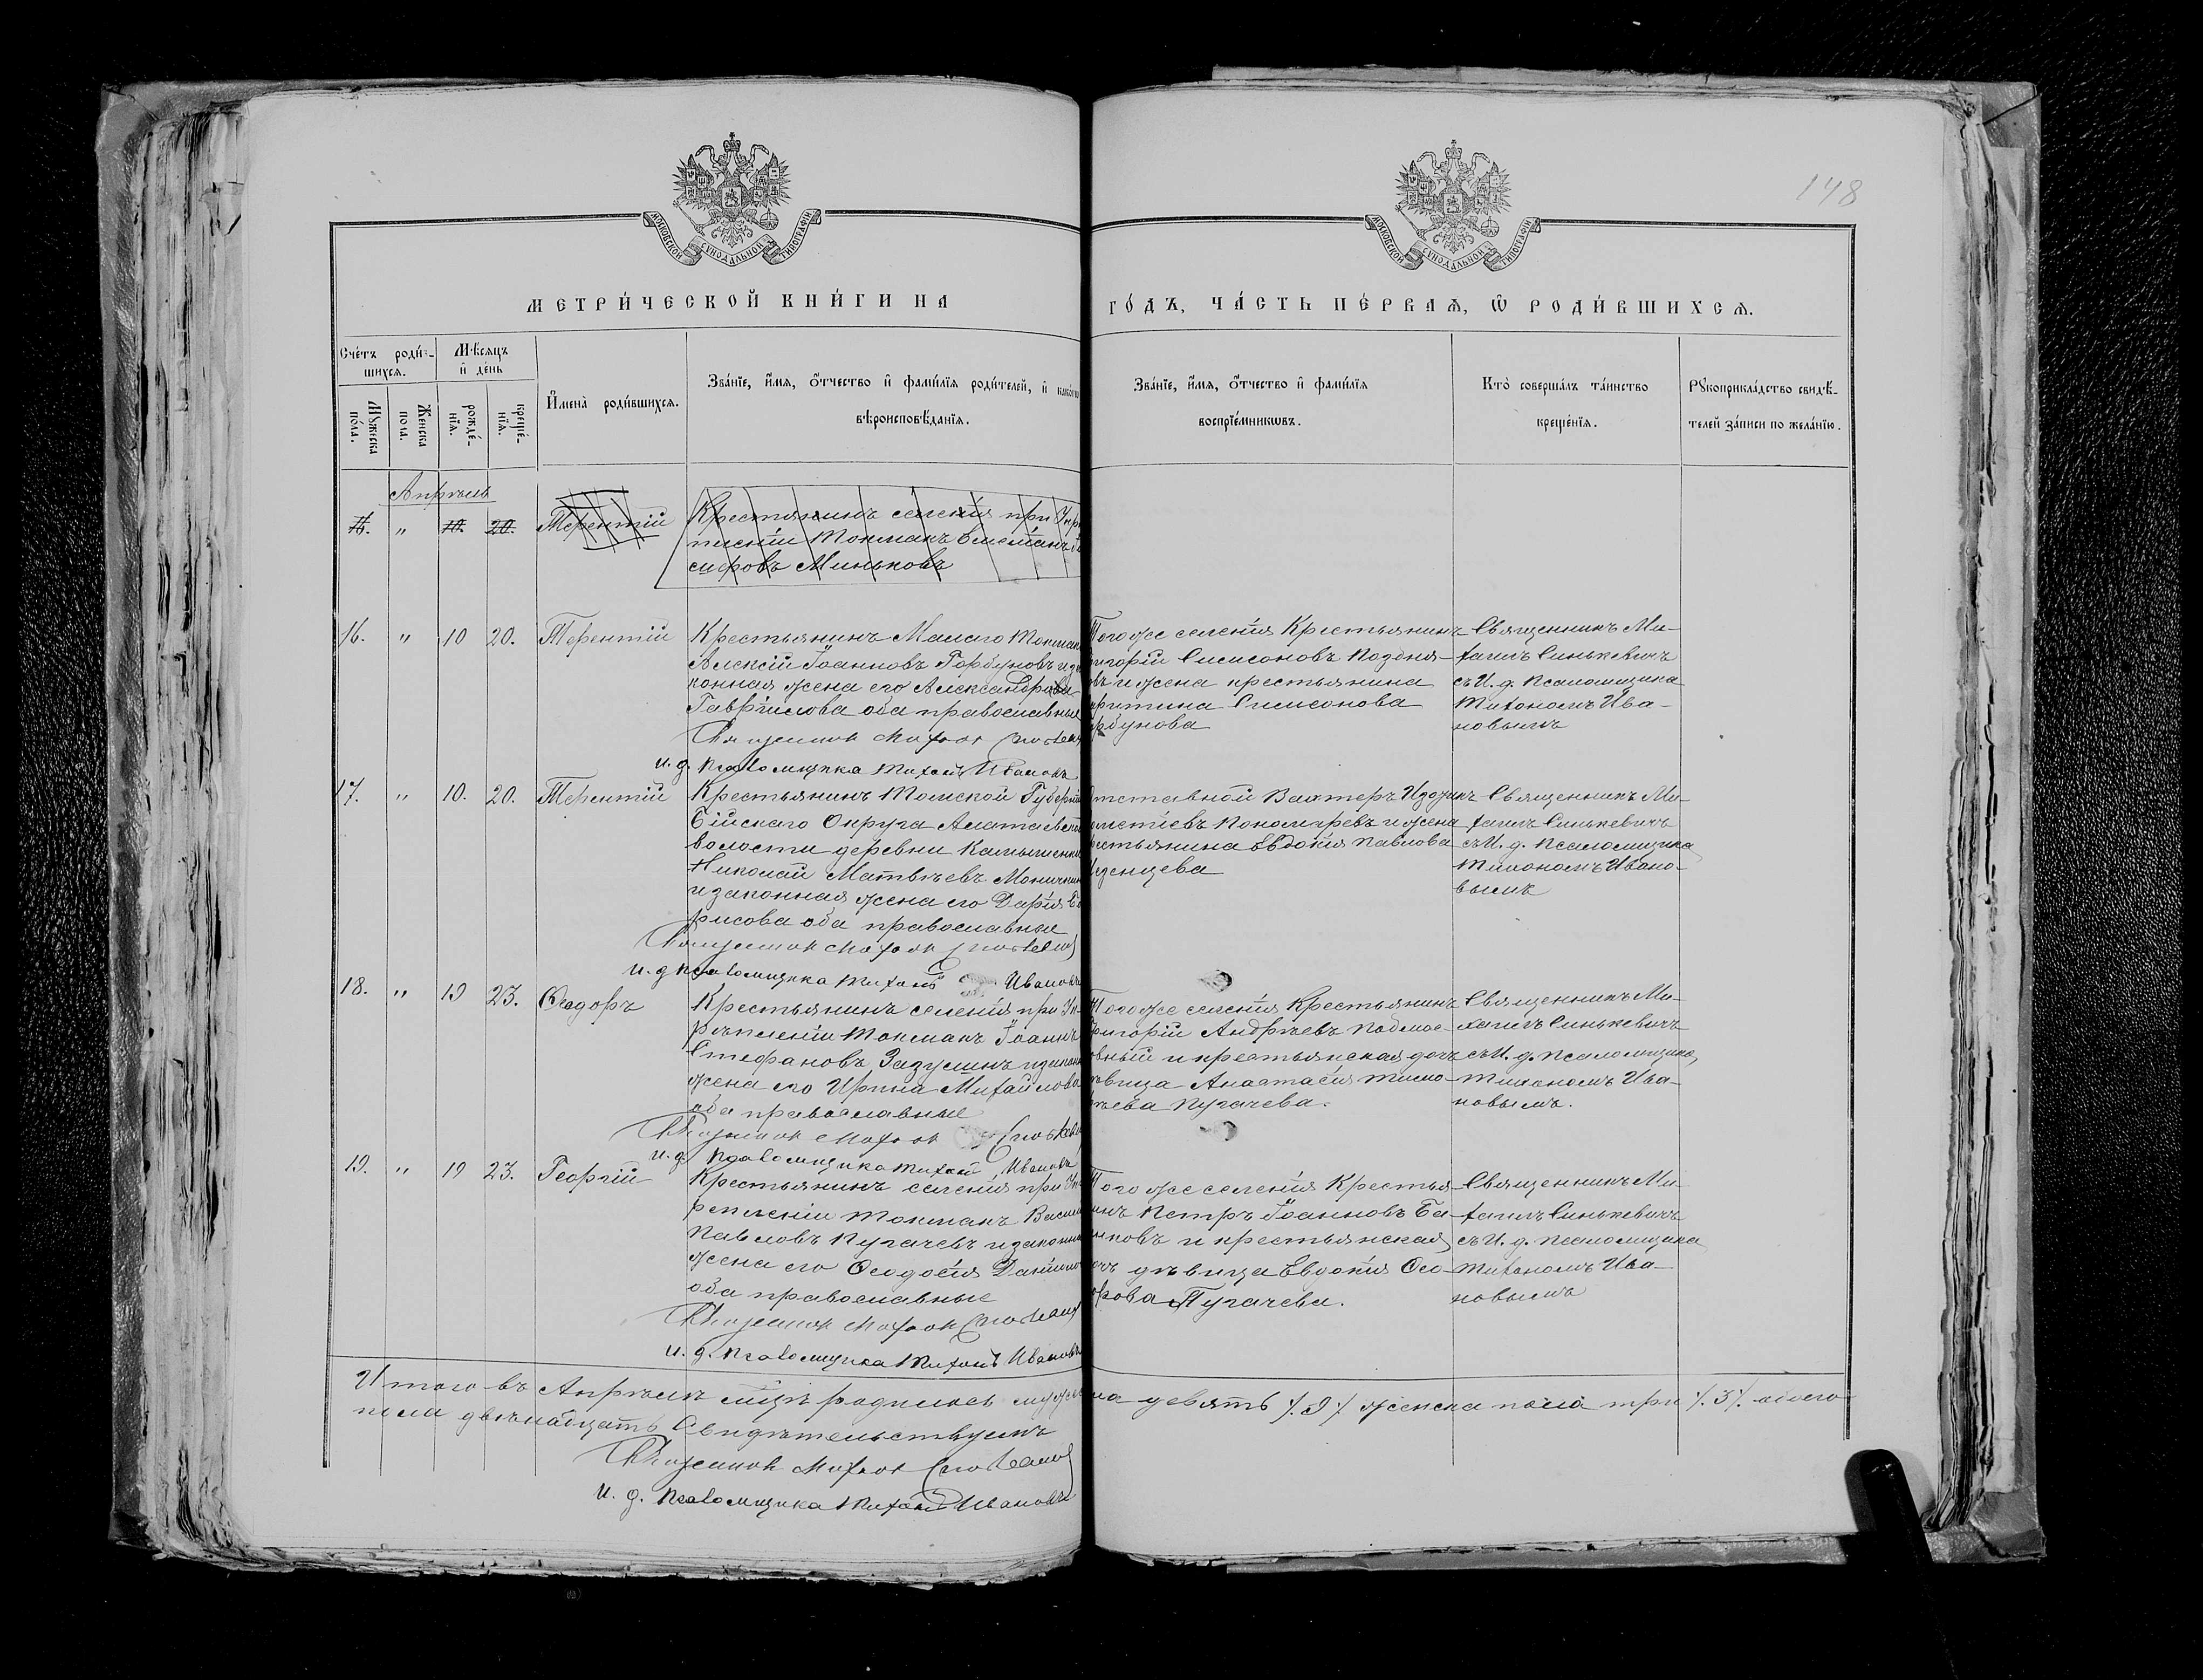 148
МОСКОВСКОЙ СѴНОДАЛЬНОЙ ТИПОГРАФІИ
МОСКОВСКОЙ СѴНОДАЛЬНОЙ ТИПОГРАФІИ
МЕТРИ́ЧЕСКОЙ КНИ́ГИ НА
ГО́ДЪ, ЧА́СТЬ ПЕ́РВАѦ, Ѡ РОДИ́ВШИХСѦ.
Сче́тъ роди́в-
шихся.
Мѣ́сяцъ
и҆ де́нь
Му́жеска
по́ла.
Же́нска
пола.
рожде́-
нїя.
креще́-
нїя.
И҆мена̀ роди́вшихся.
Зва́нїе, и҆́мя, о҆́тчество и҆ фами́лїя роди́телей, и҆ како́гѡ
вѣроисповѣ́данїя.
Зва́нїе, и҆́мя, о҆́тчество и҆ фами́лїя
воспрїе́мникѡвъ.
Кто̀ соверша́лъ та́инство
креще́нїя.
Рꙋкоприкла́дство свидѣ́-
телей за́писи по жела́нїю.
Апрѣль
" 10. 20. Терентій
Крестьянинъ селенія при Укрѣ
пленіи Токмакъ
сифовъ Миньковъ
16. " 10 20. Терентій
Крестьянинъ Малаго Токмак
Алексій Іоанновъ Горбуновъ и за
конная жена его Александра
Гавріилова оба православные
Священникъ Михаилъ Синькевичъ
и. д. Псаломщика Тихонъ Ивановъ
Того же селенія Крестьянинъ
ригорій Симеоновъ Поздня-
въ и жена крестьянина
Симеонова
рбунова
Священникъ Ми-
хаилъ Синькевичъ
съ И. д. Псаломщика
Тихономъ Ива-
новымъ
17. " 10. 20. Терентій
Крестьянинъ Томской Губерніи
Бійскаго Округа
волости деревни Камышенки
Николай Матвѣевъ
и законная жена его Дарія Бо
рисова оба православные
Священникъ Михаилъ Синькевичъ
и. д Псаломщика Тихонъ Ивановъ
Отставной Вахтеръ
Пономаревъ и жена
рестьянина Евдокія Павлова
Священникъ Ми-
хаилъ Синькевичъ
съ И. д. Псаломщика
Тихономъ Ивано-
вымъ
18. " 19 23. Ѳеодоръ
Крестьянинъ селенія при Ук-
рѣпленіи Токмакъ Іоаннъ
Стефановъ и законн
жена его Ирина Михайлова
оба православные
Священникъ Михаилъ Синькевичъ
и. д. Псаломщика Тихонъ Ивановъ
Того же селенія Крестьянинъ
Григорій Андрѣевъ
и крестьянская дочь
ѣвица Анастасія Тимо-
ѳеева Пугачева.
Священникъ Ми-
хаилъ Синькевичъ
съ И. д. Псаломщика
Тихономъ Ива-
новымъ.
19. " 19 23. Георгій
Крестьянинъ селенія при Ук
репленіи Токмакъ Васил
Павловъ Пугачевъ и законн
жена его Ѳеодосія Даніилов
оба православные
Священникъ Михаилъ Синькевичъ
и. д. Псаломщика Тихонъ Ивановъ
Того же селенія Крестья-
инъ Петръ Іоанновъ Ба-
и крестьянская
очь дѣвица Евдокія Ѳео-
орова Пугачева.
Священникъ Ми-
хаилъ Синькевичъ
съ И. д. Псаломщика
Тихономъ Ива-
новымъ
Итого въ Апрѣлѣ мцѣ родилось мужес ла девять /.9./ женска пола три /.3./. обоего
пола двѣнадцать Свидѣтельствуемъ
Священникъ Михаилъ Синькевичъ
И. д. Псаломщика Тихонъ Ивановъ